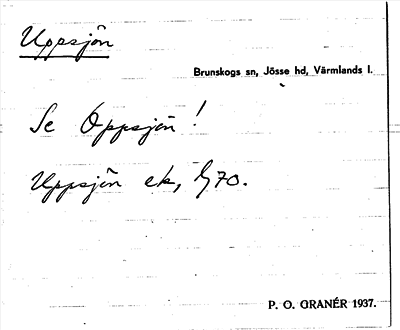 Uppsjön
Brunskogs sn, Jösse hd, Värmlands l.
Se Öppsjön!
Uppsjön ek, G70.
P. O. GRANÉR 1937.